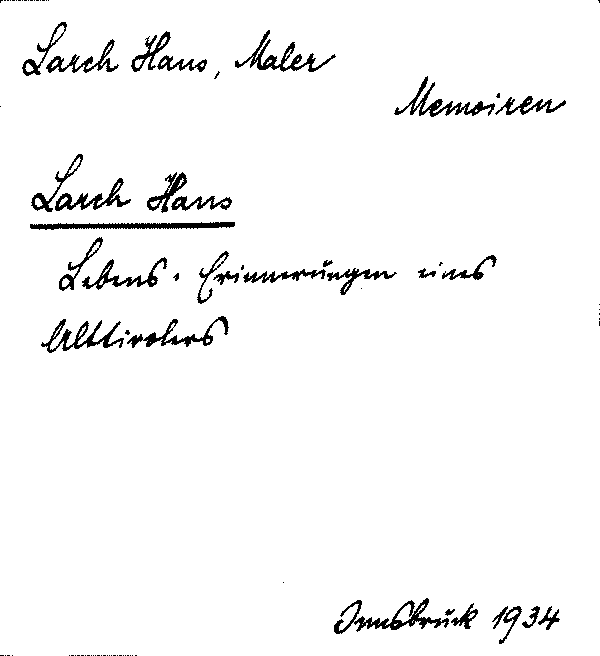 Larch Hans, Maler
Memoiren
Larch Hans
Lebens-Erinnerungen eines
Alttirolers
Innsbruck 1934